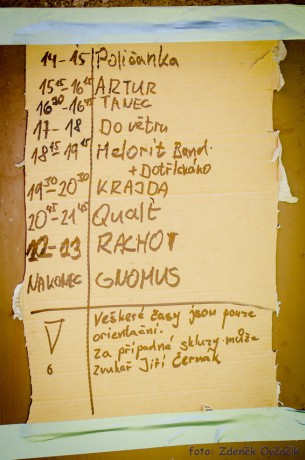 14-15 Poličanka
15⁴⁵-16¹⁵ ARTUR
16³⁰-16⁴⁵ TANEC
17-18 Do větru
18¹⁵-19¹⁵ Melorit Band
+ Dotřískáno
19³⁰-20³⁰ KRAJDA
20⁴⁵-21⁴⁵ Qualt
22-23 RACHOT
NAKONEC GNOMUS
Veškeré časy jsou pouze
orientační.
Za případné skluzy může
zvukař Jiří Černák
6
foto: Zdeněk